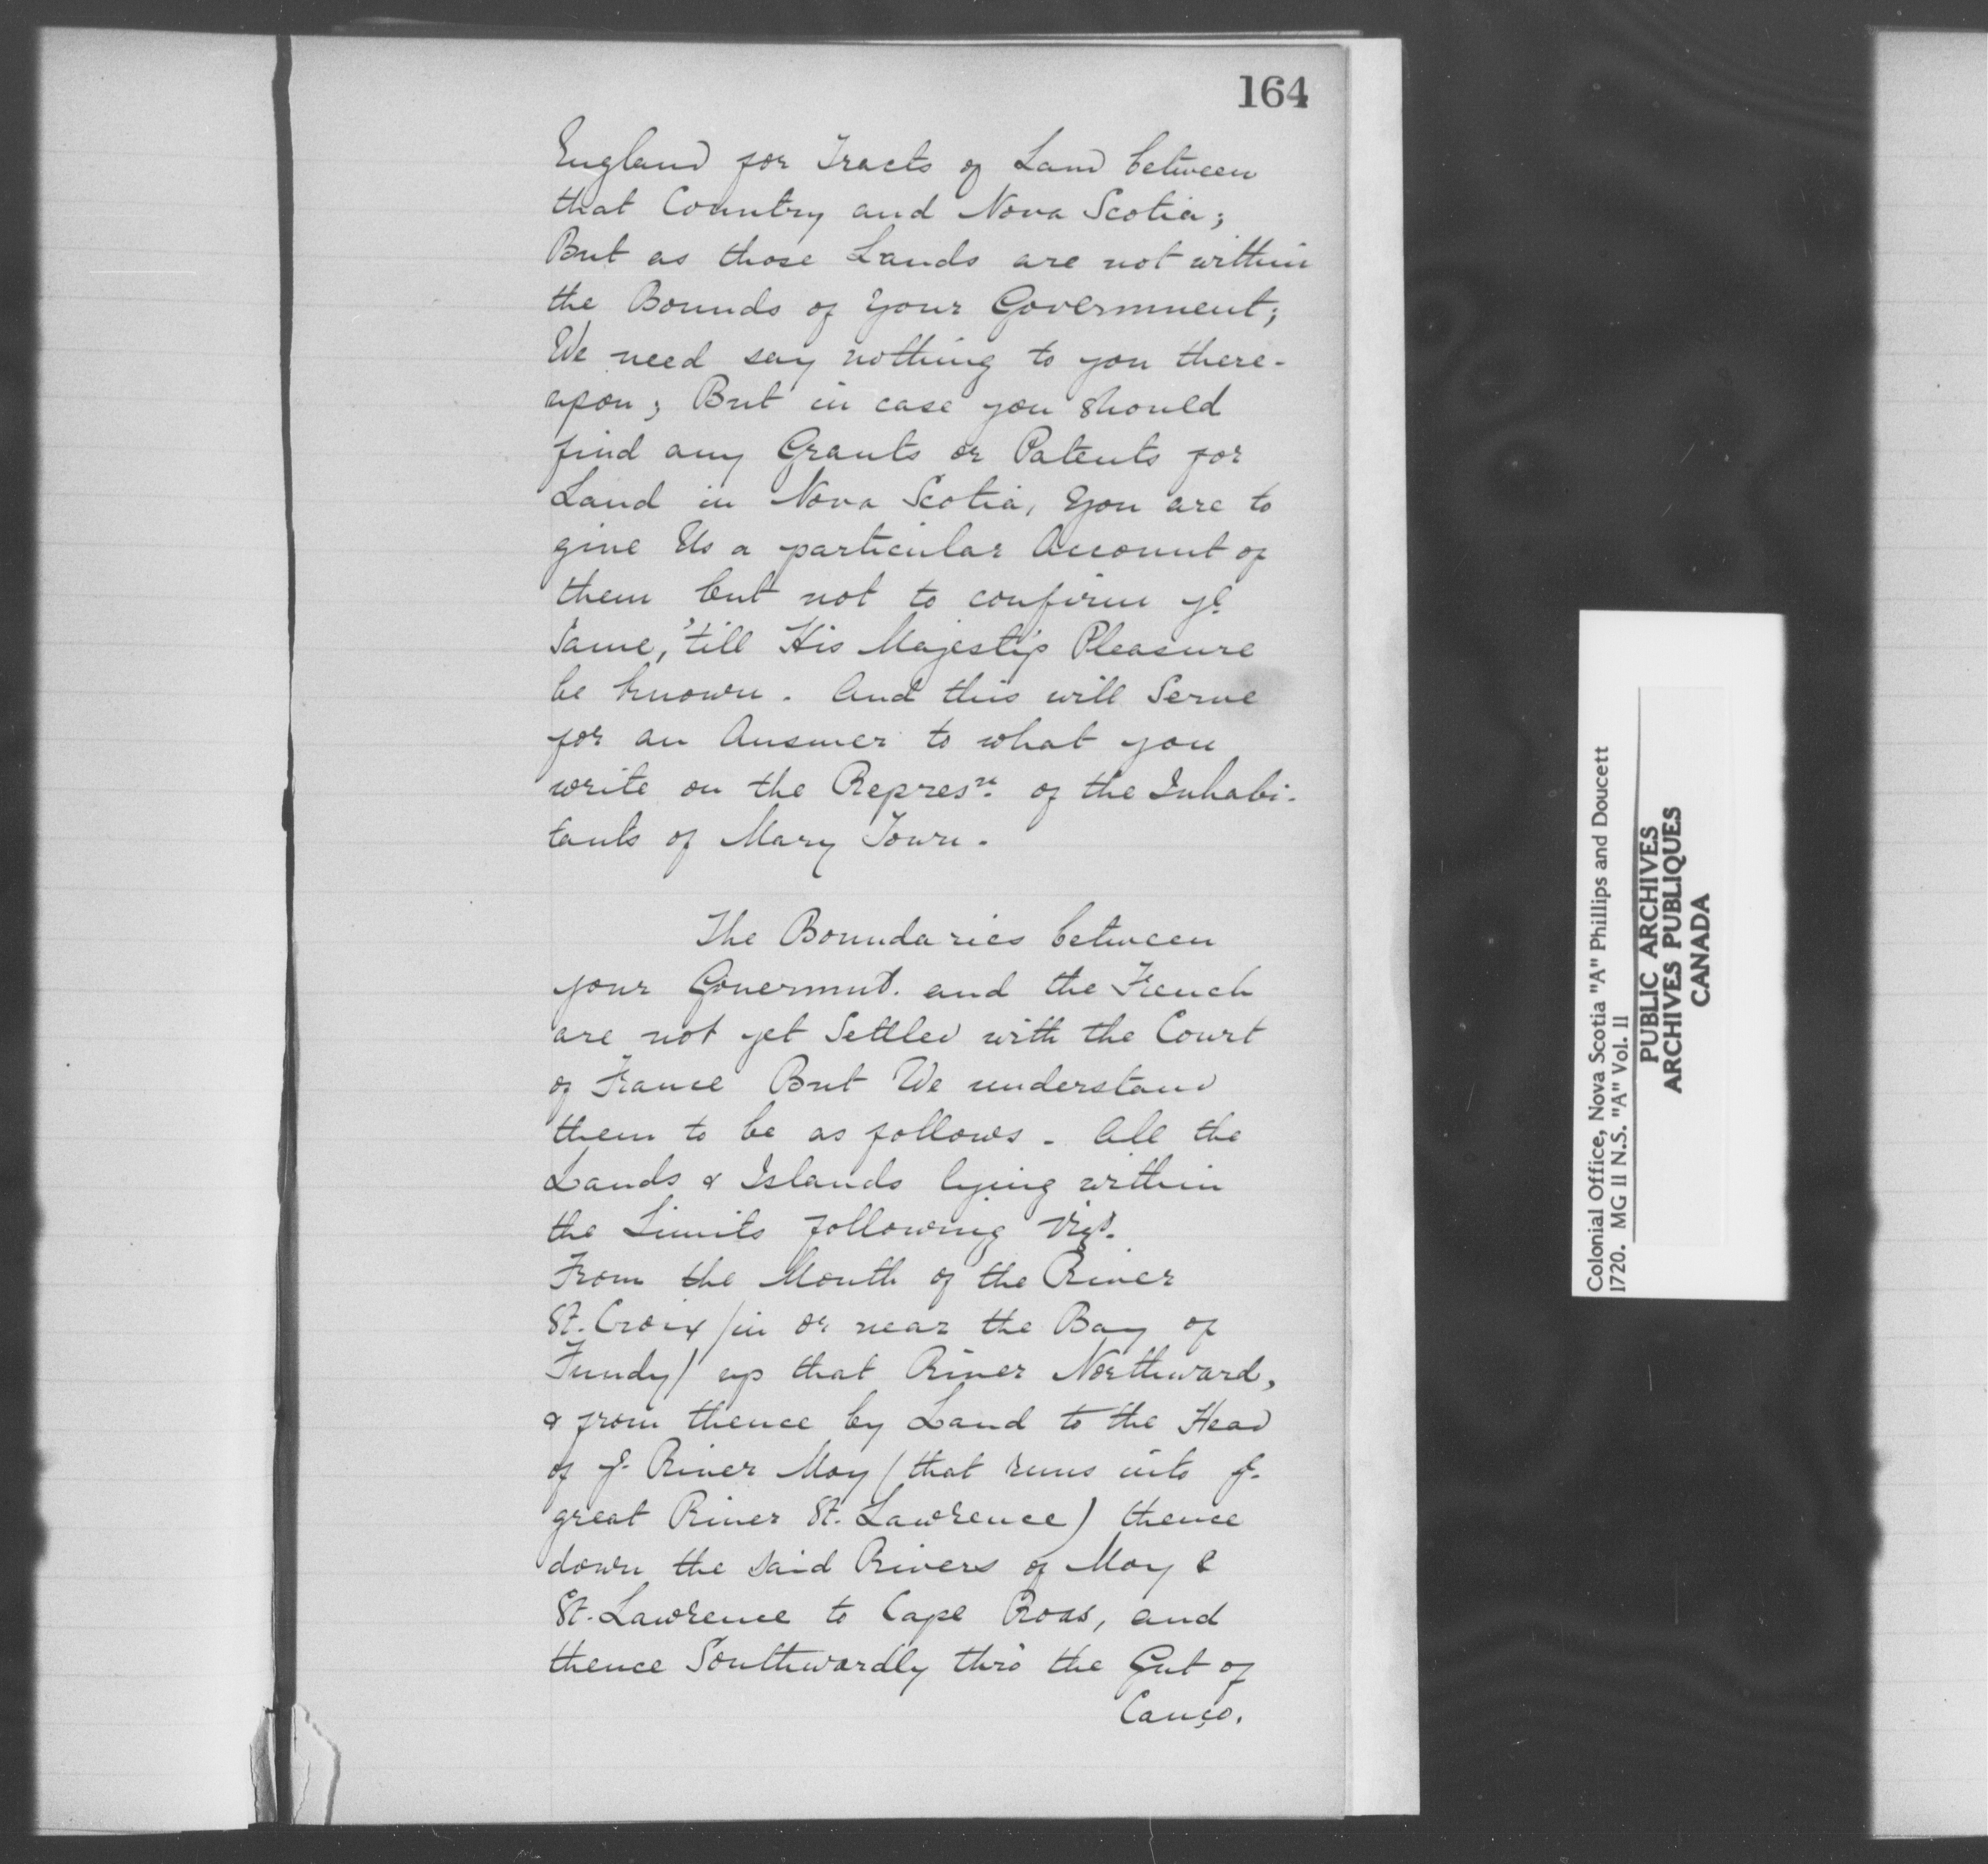 164
England for Tracts of Land between
that Country and Nova Scotia;
But as those Lands are not within
the Bounds of Your Government;
We need say nothing to you there-
upon; But in case you should
find any Grants or Patents for
Land in Nova Scotia, You are to
give Us a particular Account of
them but not to confirm ye
Same, 'till His Majesty's Pleasure
be known. And this will Serve
for an Answer to what you
write on the Represn. of the Inhabi-
tants of Mary Town.
The Boundaries between
your Governmt. and the French
are not yet Settled with the Court
of France But We understand
them to be as follows. All the
Lands & Islands lying within
the Limits following Vizt.
From the Mouth of the River
St. Croix /in or near the Bay of
Fundy/ up that River Northward,
& from thence by Land to the Head
of ye River May (that runs into ye
great River St. Lawrence) thence
down the said Rivers of May &
St. Lawrence to Cape Roas, and
thence Southwardly thro' the Gut of
Canço.
Colonial Office, Nova Scotia "A" Phillips and Doucett
1720. MG 11 N.S. "A" Vol. 11
PUBLIC ARCHIVES
ARCHIVES PUBLIQUES
CANADA